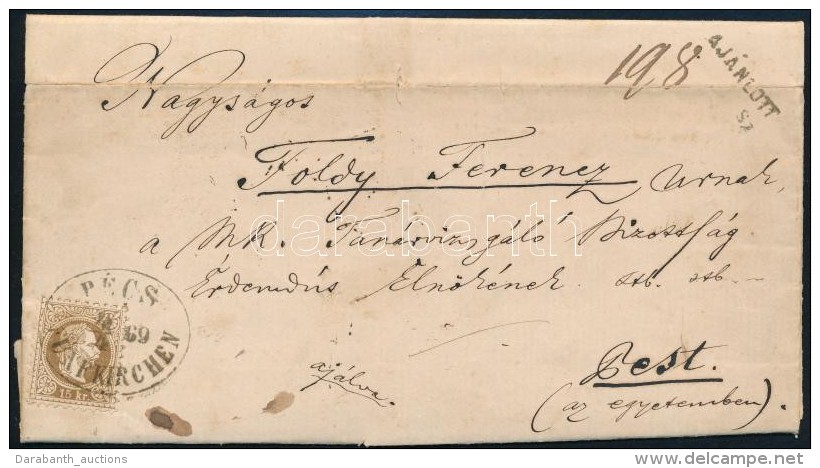 198
AJÁNLOTT
Sz
Nagyságos
Földy Ferencz urnak,
a MK. Tanárvizsgáló Bizottság
Érdemdús Elnökének stb. stb.
ajálva.
Pest.
(az egyetemben).
PÉCS
69
KIRCHEN
15 kr
darabanth
Darabanth_auctions
delcampe.net